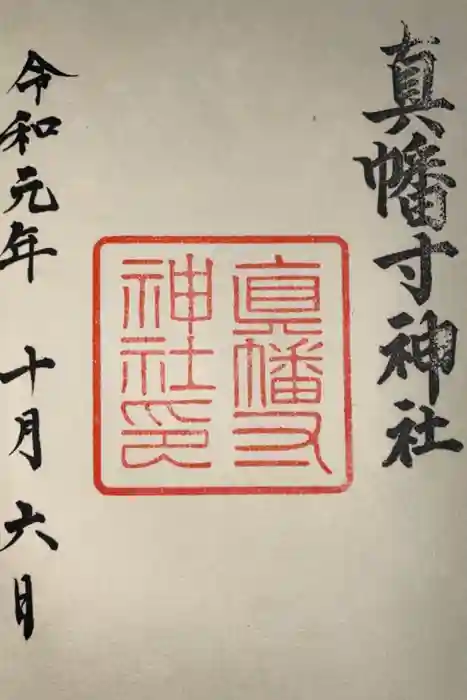 真幡寸神社
真幡寸
神社印
令和元年 十月 六日